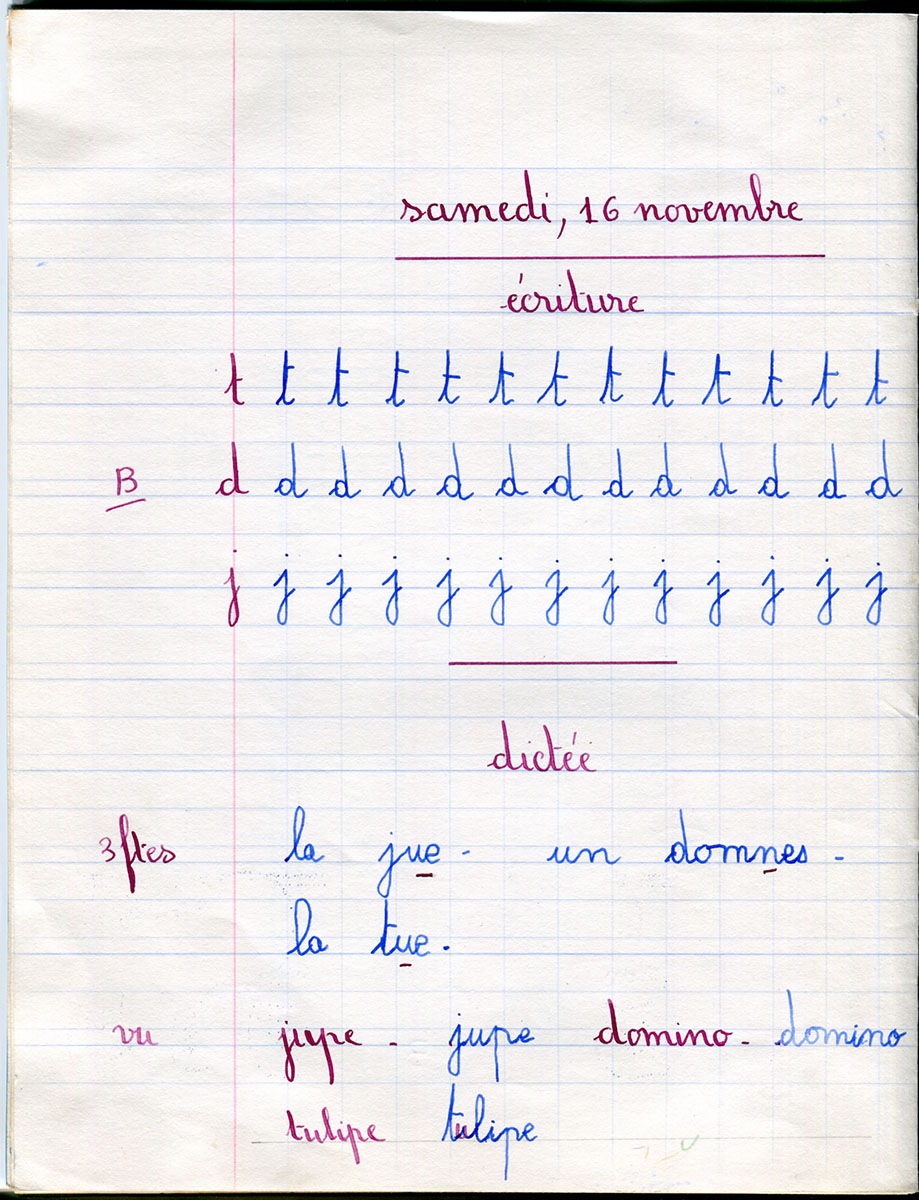 samedi, 16 novembre
écriture
t t t t t t t t t t t t t
B d d d d d d d d d d d d d
j j j j j j j j j j j j j
dictée
3 ftes la jue - un domnes -
la tue -
vu jupe - jupe domino - domino
tulipe tulipe